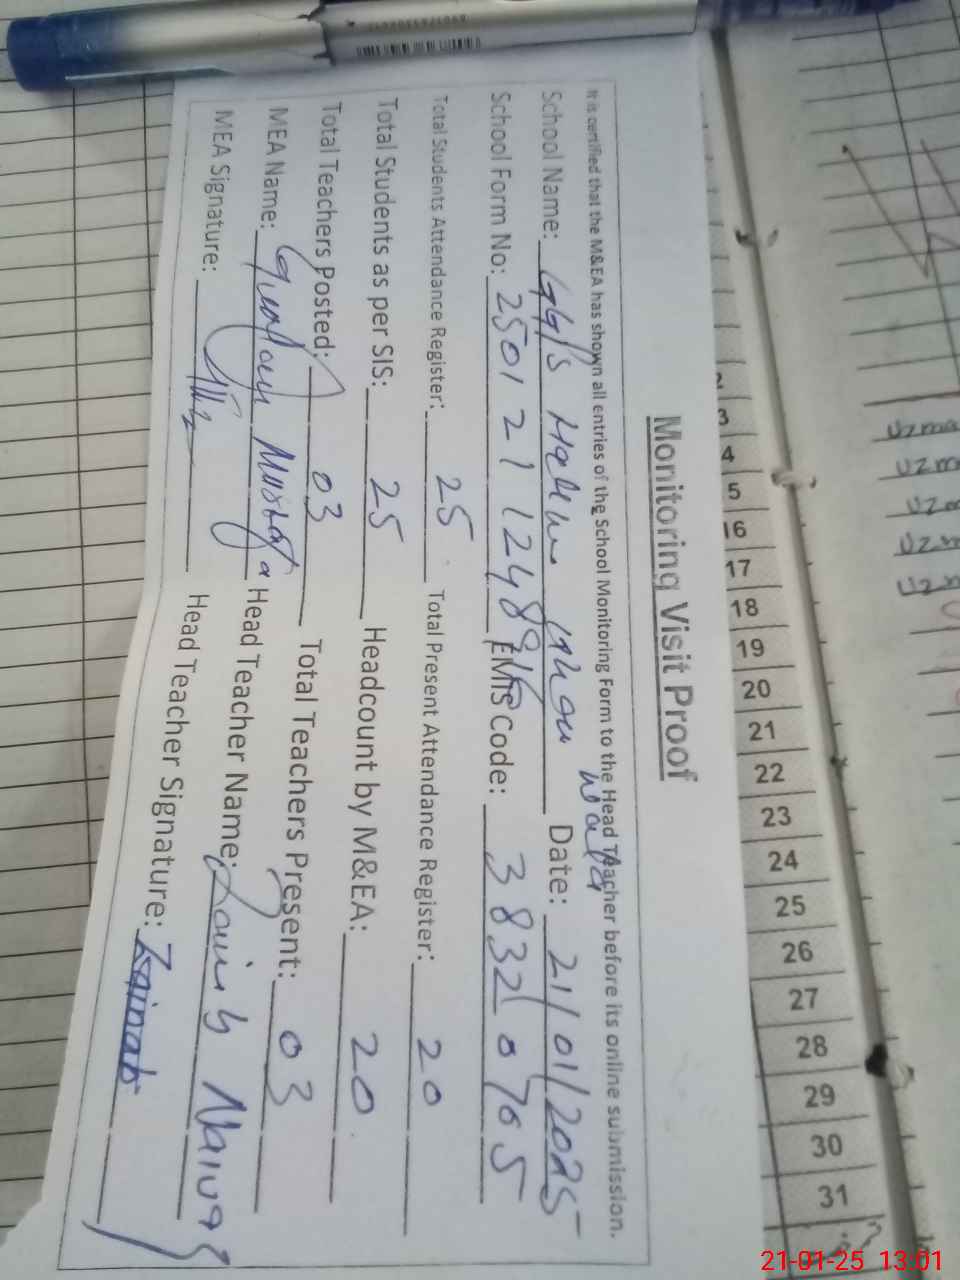 Monitoring Visit Proof
It is certified that the M&EA has shown all entries of the School Monitoring Form to the Head Teacher before its online submission.
School Name: Date: 21/01/2025
wala
School Form No: EMIS Code: 38320705
Total Students Attendance Register: 25 Total Present Attendance Register: 20
Total Students as per SIS: 25 Headcount by M&EA: 20
Total Teachers Posted: 03 Total Teachers Present: 03
MEA Name: Head Teacher Name:
MEA Signature: Head Teacher Signature: Zainab
3
4
5
16
17
18
19
20
21
22
23
24
25
26
27
28
29
30
31
Uzma
Uzm
Uzm
Uzm
21-01-25 13:01